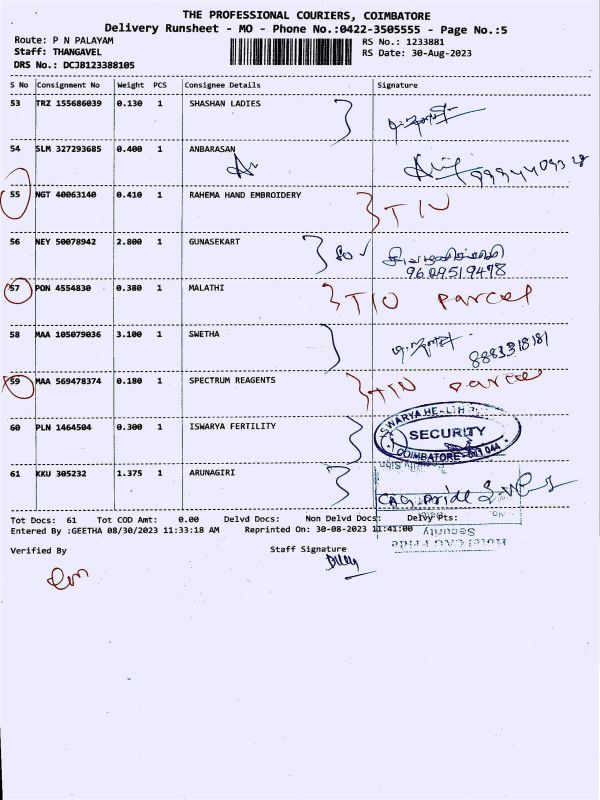 THE PROFESSIONAL COURIERS, COIMBATORE
Delivery Runsheet - MO - Phone No.:0422-3505555 - Page No.:5
Route: P N PALAYAM RS No.: 1233881
Staff: THANGAVEL RS Date: 30-Aug-2023
DRS No.: DCJB123388105
S No Consignment No Weight PCS Consignee Details Signature
53 TRZ 155686039 0.130 1 SHASHAN LADIES
54 SLM 327293685 0.400 1 ANBARASAN
55 NGT 40063140 0.410 1 RAHEMA HAND EMBROIDERY
56 NEY 50078942 2.800 1 GUNASEKART
9609519478
57 PON 4554830 0.380 1 MALATHI T10 Parcel
58 MAA 105079036 3.100 1 SWETHA
8883318181
59 MAA 569478374 0.180 1 SPECTRUM REAGENTS Parcel
60 PLN 1464504 0.300 1 ISWARYA FERTILITY SECURITY
COIMBATORE
61 KKU 305232 1.375 1 ARUNAGIRI
CAG Pride
Tot Docs: 61 Tot COD Amt: 0.00 Delvd Docs: Non Delvd Docs: Delvy Pts:
Entered By :GEETHA 08/30/2023 11:33:18 AM Reprinted On: 30-08-2023 11:41:00
Security
Hotel CAG Pride
Verified By Staff Signature